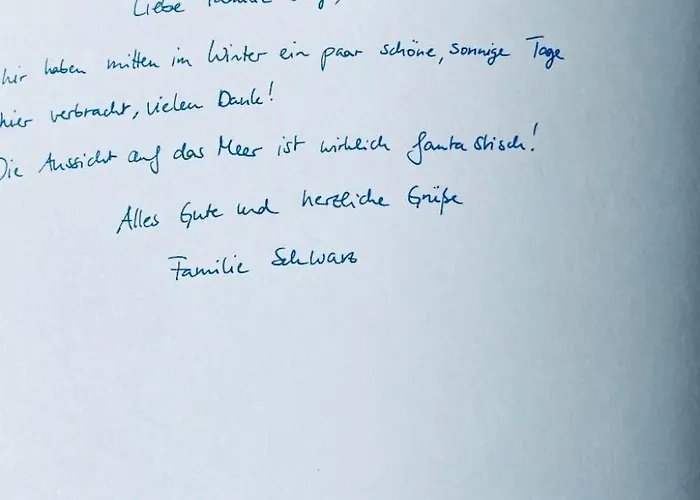 Liebe
wir haben mitten im Winter ein paar schöne, sonnige Tage
hier verbracht, vielen Dank!
Die Aussicht auf das Meer ist wirklich fantastisch!
Alles Gute und herzliche Grüße
Familie Schwarz